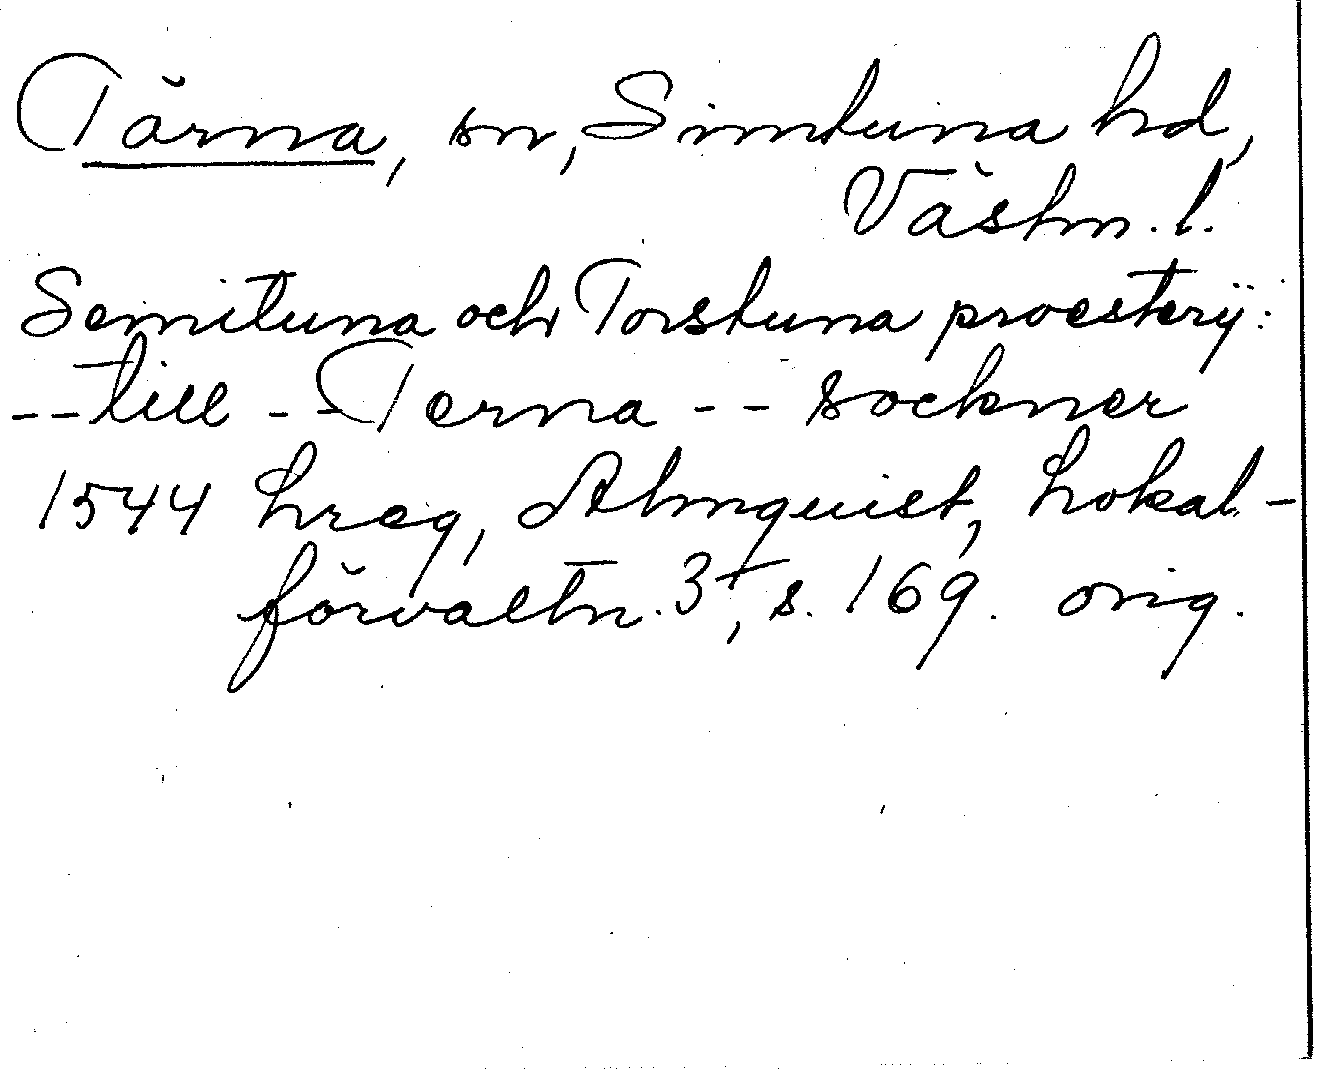 Tärna, sn, Simtuna hd,
Västm. l.
Semituna och Torstuna proesterij:
-- till -- Terna -- sockner
1544 hreg, Almquist, Lokal-
förvaltn. 3+, s. 169. orig.